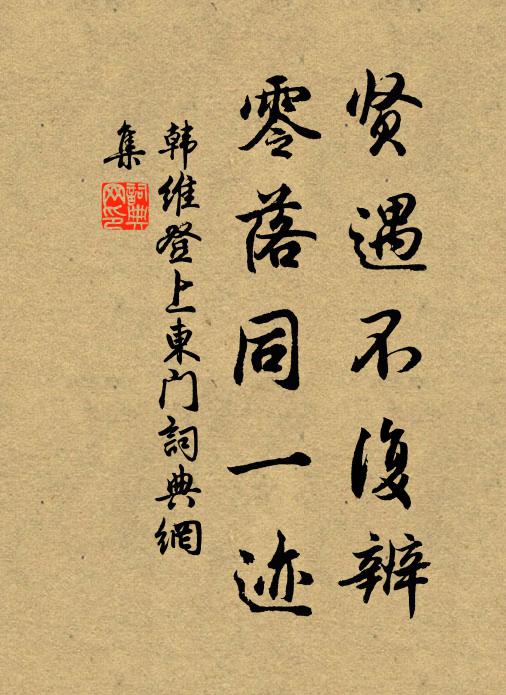 贤遇不复辨
零落同一迹
韩维登上東门詞典網
集
詞典
网印